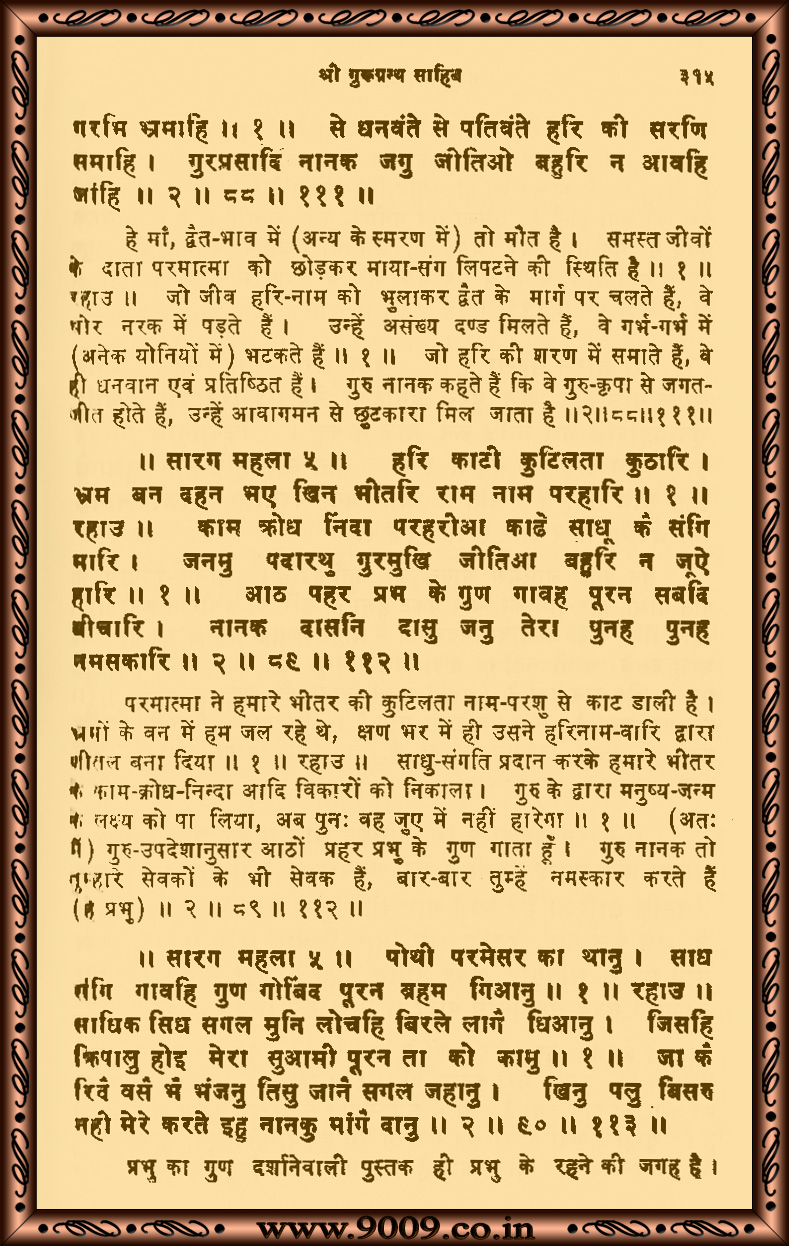 श्री गुरूग्रन्थ साहिब ३१५
गरभि भ्रमाहि ॥ १ ॥ से धनवंते से पतिवंते हरि की सरणि
समाहि । गुरप्रसादि नानक जगु जीतिओ बहुरि न आवहि
जांहि ॥ २ ॥ ८८ ॥ १११ ॥
हे माँ, द्वैत-भाव में (अन्य के स्मरण में) तो मौत है । समस्त जीवों
के दाता परमात्मा को छोड़कर माया-संग लिपटने की स्थिति है ॥ १ ॥
रहाउ ॥ जो जीव हरि-नाम को भुलाकर द्वैत के मार्ग पर चलते हैं, वे
घोर नरक में पड़ते हैं । उन्हें असंख्य दण्ड मिलते हैं, वे गर्भ-गर्भ में
(अनेक योनियों में) भटकते हैं ॥ १ ॥ जो हरि की शरण में समाते हैं, वे
ही धनवान एवं प्रतिष्ठित हैं । गुरु नानक कहते हैं कि वे गुरु-कृपा से जगत-
जीत होते हैं, उन्हें आवागमन से छुटकारा मिल जाता है ॥२॥८८॥१११॥
॥ सारग महला ५ ॥ हरि काटी कुटिलता कुठारि ।
भ्रम बन दहन भए खिन भीतरि राम नाम परहारि ॥ १ ॥
रहाउ ॥ काम क्रोध निंदा परहरीआ काढे साधू कै संगि
मारि । जनमु पदारथु गुरमुखि जीतिआ बहुरि न जूऐ
हारि ॥ १ ॥ आठ पहर प्रभ के गुण गावह पूरन सबदि
बीचारि । नानक दासनि दासु जनु तेरा पुनह पुनह
नमसकारि ॥ २ ॥ ८९ ॥ ११२ ॥
परमात्मा ने हमारे भीतर की कुटिलता नाम-परशु से काट डाली है ।
भ्रमों के वन में हम जल रहे थे, क्षण भर में ही उसने हरिनाम-वारि द्वारा
शीतल बना दिया ॥ १ ॥ रहाउ ॥ साधु-संगति प्रदान करके हमारे भीतर
के काम-क्रोध-निन्दा आदि विकारों को निकाला । गुरु के द्वारा मनुष्य-जन्म
के लक्ष्य को पा लिया, अब पुनः वह जुए में नहीं हारेगा ॥ १ ॥ (अतः
मैं) गुरु-उपदेशानुसार आठों प्रहर प्रभु के गुण गाता हूँ । गुरु नानक तो
तुम्हारे सेवकों के भी सेवक हैं, बार-बार तुम्हें नमस्कार करते हैं
(हे प्रभु) ॥ २ ॥ ८९ ॥ ११२ ॥
॥ सारग महला ५ ॥ पोथी परमेसर का थानु । साध
संगि गावहि गुण गोबिंद पूरन ब्रहम गिआनु ॥ १ ॥ रहाउ ॥
साधिक सिध सगल मुनि लोचहि बिरले लागै धिआनु । जिसहि
क्रिपालु होइ मेरा सुआमी पूरन ता को कामु ॥ १ ॥ जा कै
रिदै वसै भै भंजनु तिसु जानै सगल जहानु । खिनु पलु बिसरु
नही मेरे करते इहु नानकु मांगै दानु ॥ २ ॥ ९० ॥ ११३ ॥
प्रभु का गुण दर्शानेवाली पुस्तक ही प्रभु के रहने की जगह है ।
www.9009.co.in